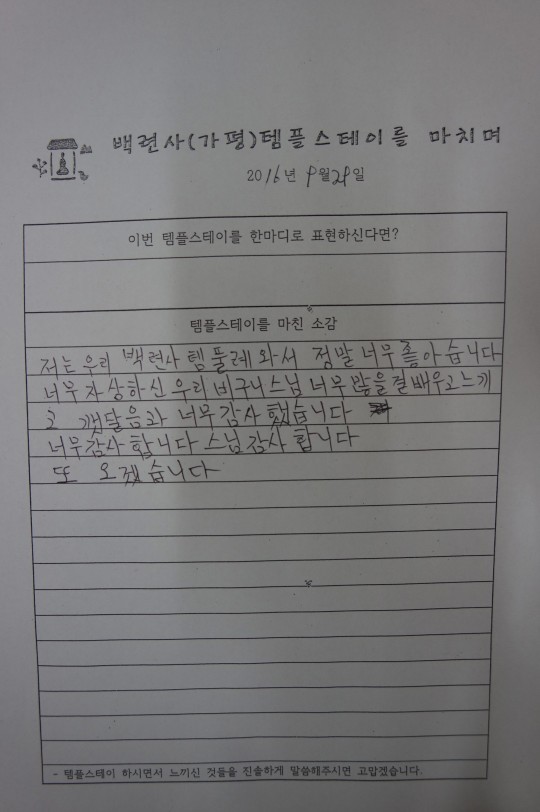 백련사(가평)템플스테이를 마치며
2016년 9월 29일
이번 템플스테이를 한마디로 표현하신다면?
템플스테이를 마친 소감
저는 우리 백련사 템풀레 와서 정말 너무 좋아습니다
너무 자상하신 우리 비구니스님 너무 많을걸 배우고 느끼
고 깻달음과 너무 감사 했습니다
너무 감사 합니다 스님 감사 합니다
또 오겠습니다
- 템플스테이 하시면서 느끼신 것들을 진솔하게 말씀해주시면 고맙겠습니다.